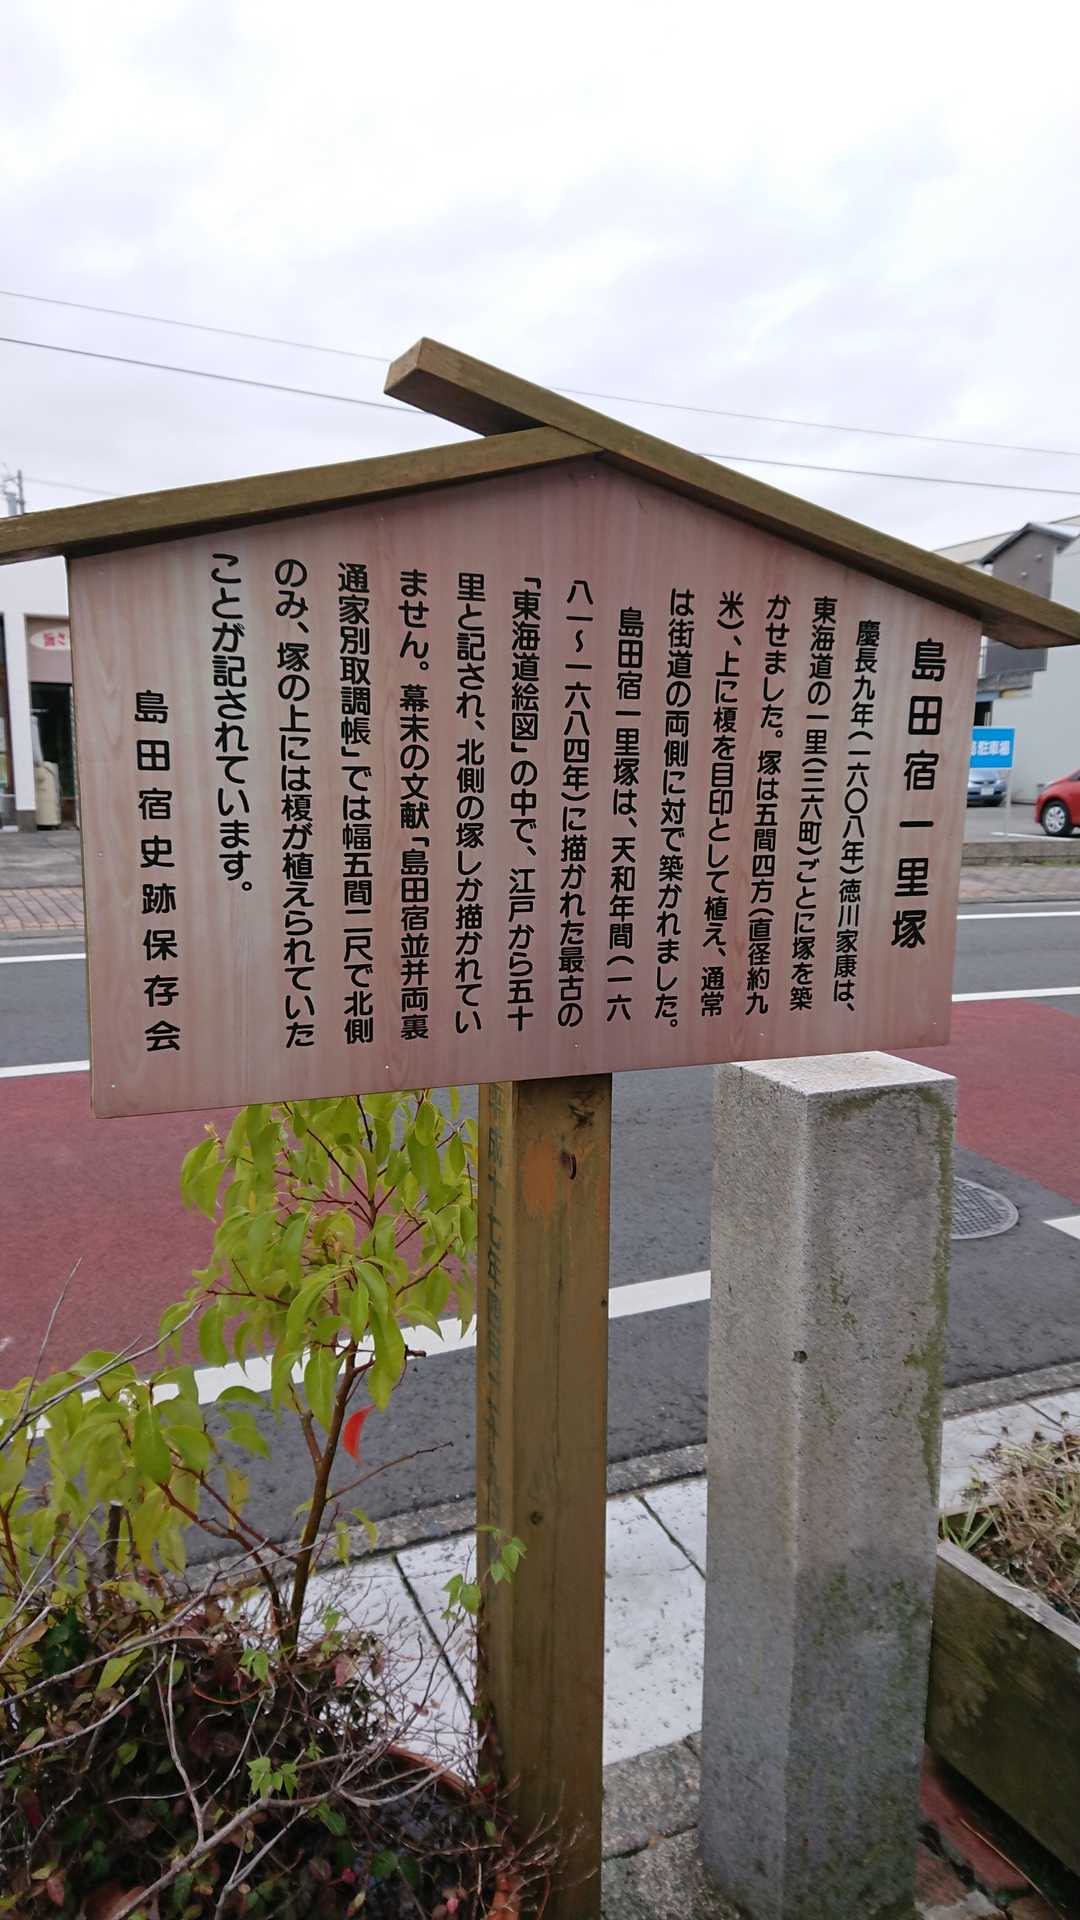 島田宿一里塚
慶長九年(一六〇八年)徳川家康は、
東海道の一里(三六町)ごとに塚を築
かせました。塚は五間四方(直径約九
米)、上に榎を目印として植え、通常
は街道の両側に対で築かれました。
島田宿一里塚は、天和年間(一六
八一〜一六八四年)に描かれた最古の
「東海道絵図」の中で、江戸から五十
里と記され、北側の塚しか描かれてい
ません。幕末の文献「島田宿並井両裏
通家別取調帳」では幅五間二尺で北側
のみ、塚の上には榎が植えられていた
ことが記されています。
島田宿史跡保存会